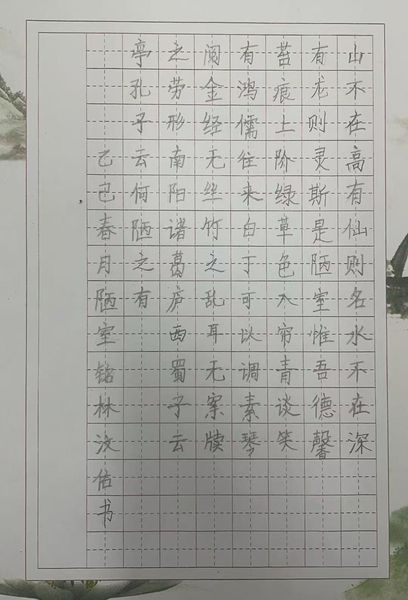 山不在高有仙则名水不在深
有龙则灵斯是陋室惟吾德馨
苔痕上阶绿草色入帘青谈笑
有鸿儒往来白丁可以调素琴
阅金经无丝竹之乱耳无案牍
之劳形南阳诸葛庐西蜀子云
亭孔子云何陋之有
乙巳春月陋室铭林书